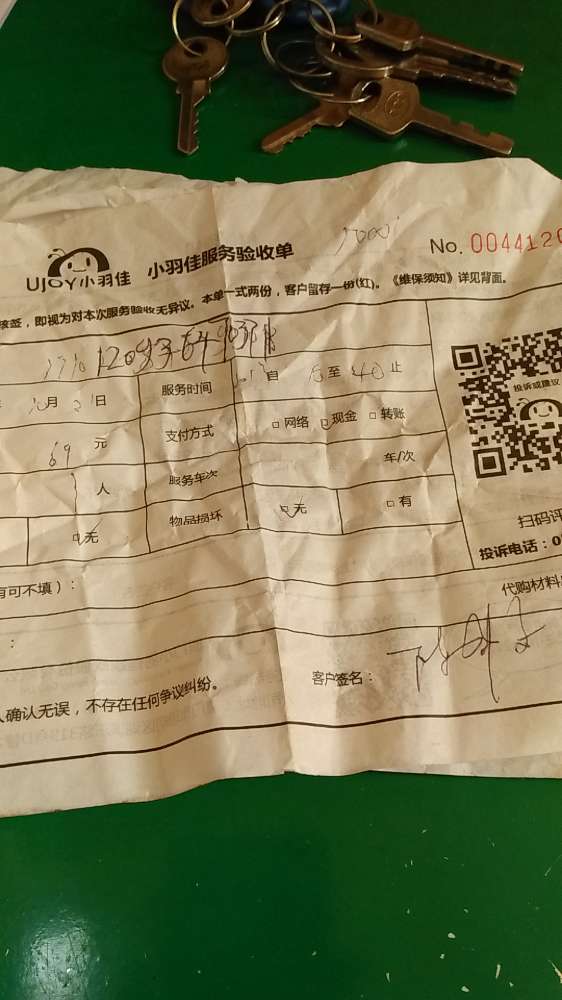 UJOY小羽佳 小羽佳服务验收单 No. 0044120
核签，即视为对本次服务验收无异议。本单一式两份，客户留存一份(红)。《维保须知》详见背面。
月 21 日 服务时间 自 至 止
投诉或建议
69 元 支付方式 □网络 □现金 □转账
人 服务车次 年/次
□无 物品损坏 □无 □有
扫码评
投诉电话：0
有可不填）：
代购材料
：
客户签名：
人确认无误，不存在任何争议纠纷。